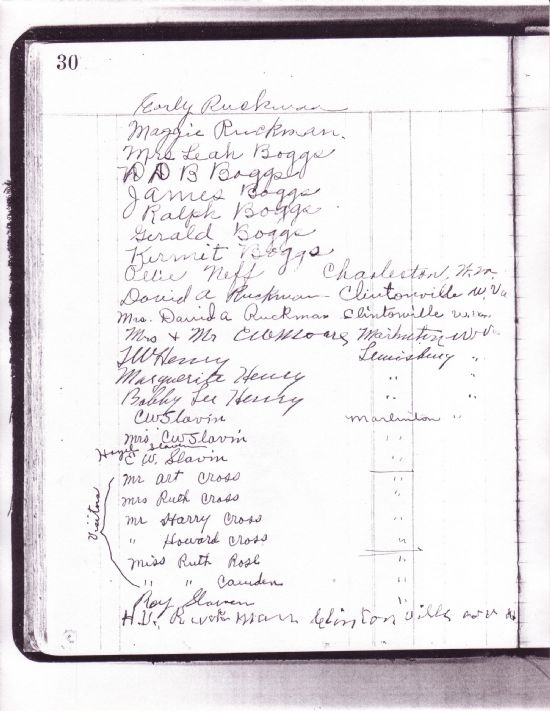 30
Early Ruckman
Maggie Ruckman.
Mrs Leah Boggs
D B Boggs
James Boggs
Ralph Boggs
Gerald Boggs
Kermit Boggs
Ollie Neff Charleston, W.Va.
David A Ruckman - Clintonville W. Va
Mrs. David A Ruckman Clintonville W.Va.
Mrs + Mr CW Moore Marlinton W Va
Henry Lewisburg "
Marguerite Henry "
Bobby Lee Henry " "
CW Slavin Marlinton "
Mrs. CW Slavin "
Hazel Slaven
C W. Slavin "
Visitors
Mr Art Cross "
Mrs Ruth Cross "
Mr Harry Cross "
" Howard Cross "
Miss Ruth Rose "
" " Camden "
Roy Slaven "
H. Ruckman Clintonville